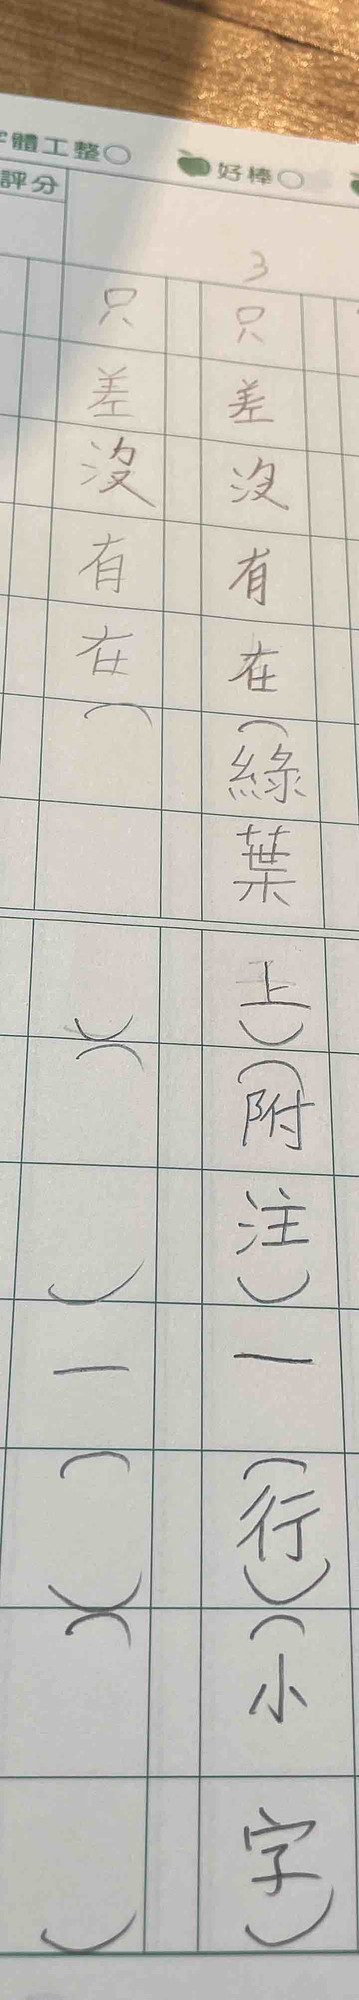 字體工整○ 好棒○
評分
3
只差沒有在(綠葉上)(附注)一(行)(小字)
只差沒有在( )( )一( )( )